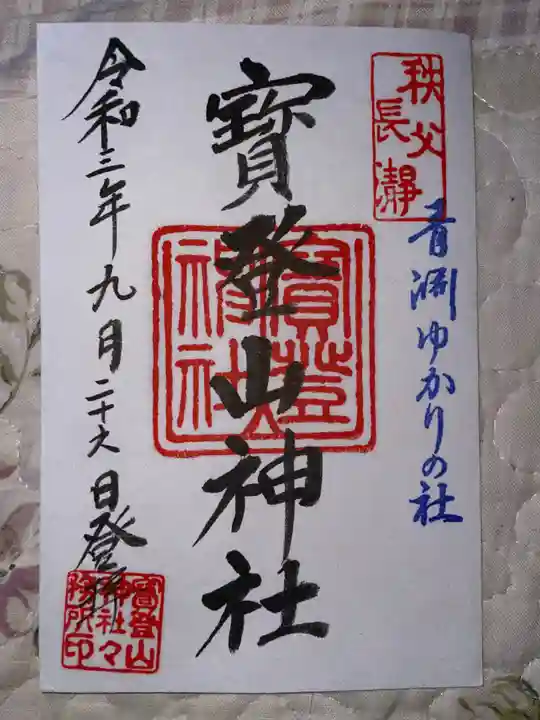 秩父
長瀞
青淵ゆかりの社
寳登山神社
寳登
神社
令和三年九月二十六日登拝
寳登山
神社々
務所印